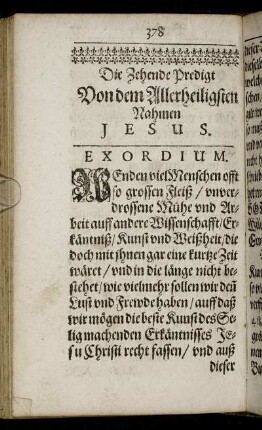 378
Die Zehende Predigt
Von dem Allerheiligsten
Nahmen
JESUS.
EXORDIUM.
WEnden viel Menschen offt
so grossen Fleiß / vnver-
drossene Mühe vnd Ar-
beit auff andere Wissenschafft / Er-
käntniß / Kunst vnd Weißheit / die
doch mit ihnen gar eine kurtze Zeit
wäret / vnd in die länge nicht be-
stehet / wie vielmehr sollen wir den̄
Lust vnd Frewde haben / auff daß
wir mögen die beste Kunst des Se-
lig machenden Erkäntnisses JE-
su Christi recht fassen / vnd auß
dieser